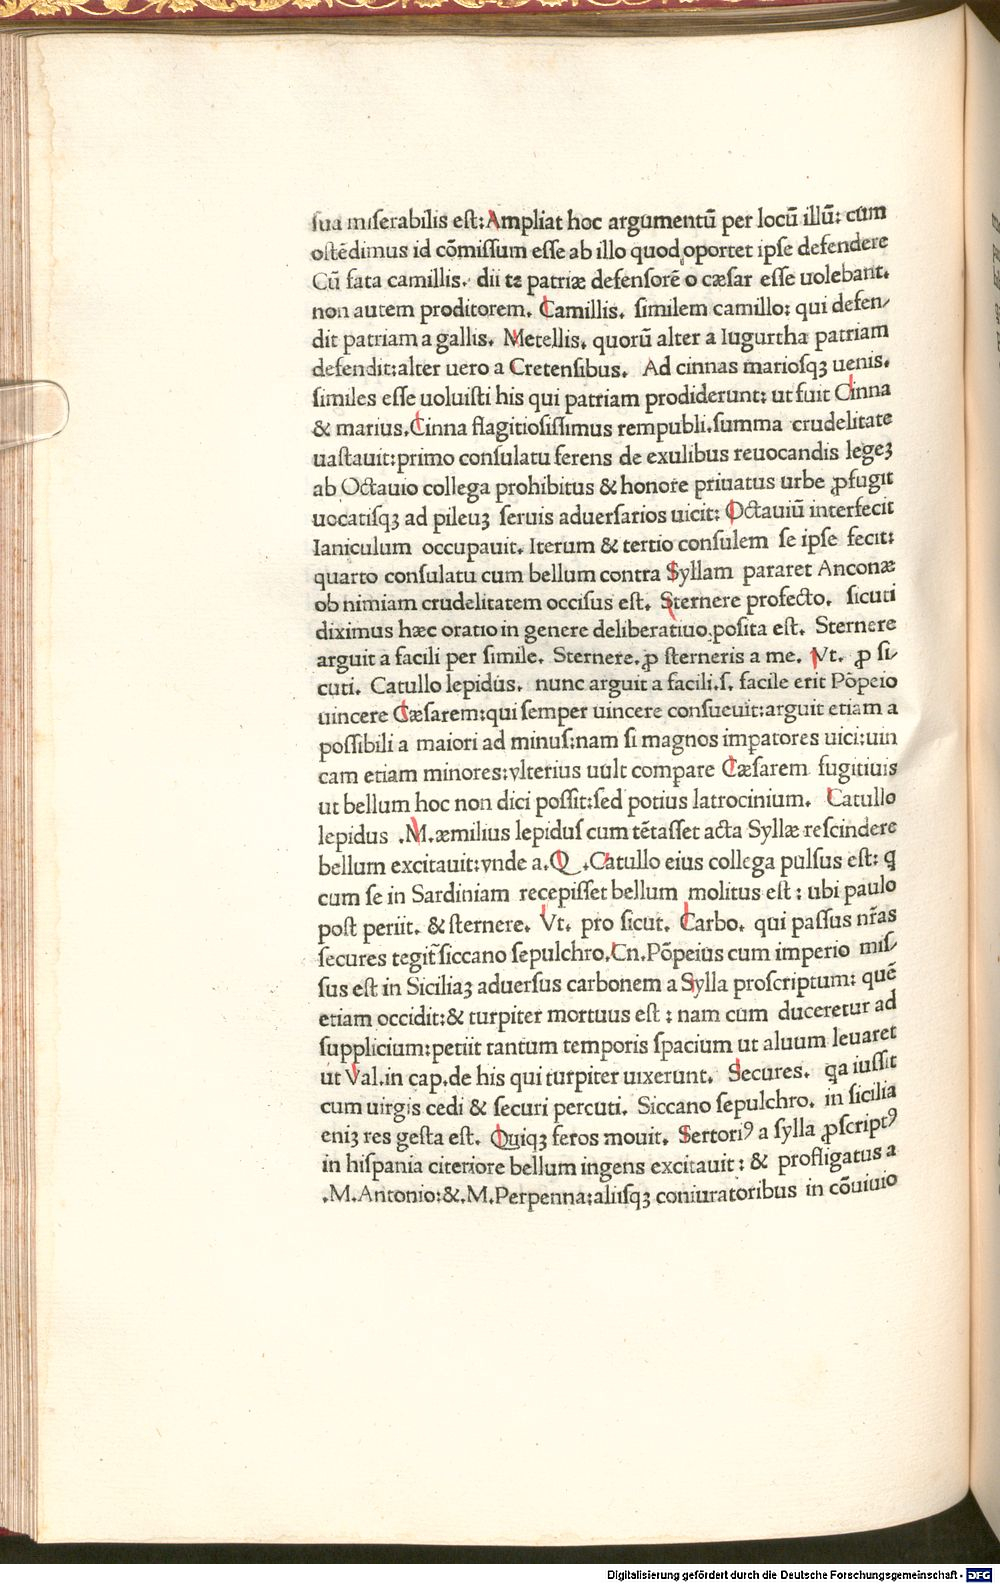 ſua miſerabilis eſt:Ampliat hoc argumentū per locū illū: cum
oſtēdimus id cōmiſſum eſſe ab illo quod oportet ipſe defendere
Cū fata camillis. dii te patriæ defenſorē o cæſar eſſe uolebant.
non autem proditorem. Camillis. ſimilem camillo: qui defen/
dit patriam a gallis. Metellis. quorū alter a Iugurtha patriam
defendit:alter uero a Cretenſibus. Ad cinnas marioſqꝫ uenis.
ſimiles eſſe uoluiſti his qui patriam prodiderunt: ut fuit Cinna
& marius.Cinna flagitioſiſſimus rempubli.ſumma crudelitate
uaſtauit:primo conſulatu ferens de exulibus reuocandis legeꝫ
ab Octauio collega prohibitus & honore priuatus urbe ꝓfugit
uocatiſqꝫ ad pileuꝫ ſeruis aduerſarios uicit: Octauiū interfecit
Ianiculum occupauit. Iterum & tertio conſulem ſe ipſe fecit:
quarto conſulatu cum bellum contra Syllam pararet Anconæ
ob nimiam crudelitatem occiſus eſt. Sternere profecto. ſicuti
diximus hæc oratio in genere deliberatiuo poſita eſt. Sternere
arguit a facili per ſimile. Sternere. ꝓ ſterneris a me. Vt. ꝓ ſi/
cuti. Catullo lepidus. nunc arguit a facili.ſ. facile erit Pōpeio
uincere Cæſarem:qui ſemper uincere conſueuit:arguit etiam a
poſſibili a maiori ad minus:nam ſi magnos imꝑatores uici:uin
cam etiam minores:ylterius uult comꝑare Cæſarem fugitiuis
ut bellum hoc non dici poſſit:ſed potius latrocinium. Catullo
lepidus .M.æmilius lepiduſ cum tētaſſet acta Syllæ reſcindere
bellum excitauit:ynde a.Q.Catullo eius collega pulſus eſt: ꝗ
cum ſe in Sardiniam recepiſſet bellum molitus eſt: ubi paulo
poſt periit. & ſternere. Vt. pro ſicut. Carbo. qui paſſus nr̄as
ſecures tegit̄ ſiccano ſepulchro.Cn.Pōpeius cum imperio miſ/
ſus eſt in Siciliaꝫ aduerſus carbonem a Sylla proſcriptum: quē
etiam occidit:& turpiter mortuus eſt: nam cum duceretur ad
ſupplicium:petiit tantum temporis ſpacium ut aluum leuaret
ut Val.in cap.de his qui turpiter uixerunt. Secures. ꝗa iuſſit
cum uirgis cedi & ſecuri percuti. Siccano ſepulchro. in ſicilia
eniꝫ res geſta eſt. Quiqꝫ feros mouit. Sertoriꝰ a ſylla ꝓſcriptꝰ
in hiſpania citeriore bellum ingens excitauit: & profligatus a
.M.Antonio:&.M.Perpenna:aliiſqꝫ coniuratoribus in cōuiuio
Digitalisierung gefördert durch die Deutsche Forschungsgemeinschaft - DFG